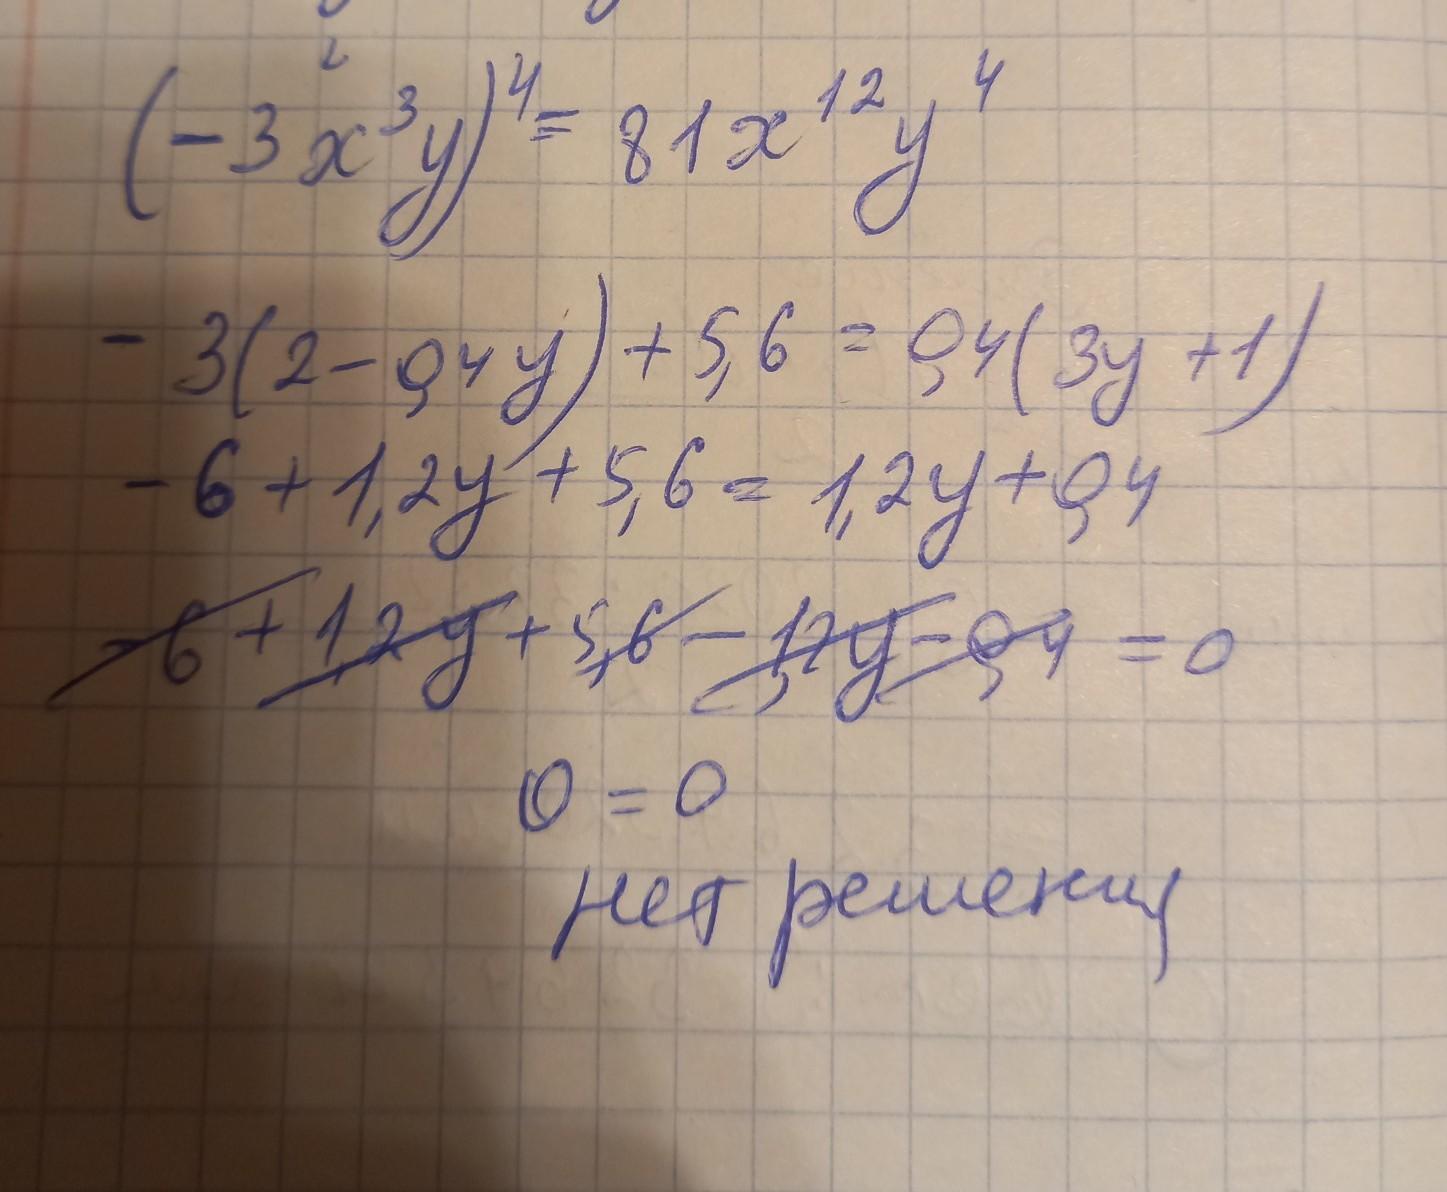 (-3x³y)⁴ = 81x¹²y⁴
-3(2-0,4y)+5,6 = 0,4(3y+1)
-6+1,2y+5,6 = 1,2y+0,4
-6+1,2y+5,6-1,2y-0,4 = 0
0 = 0
нет